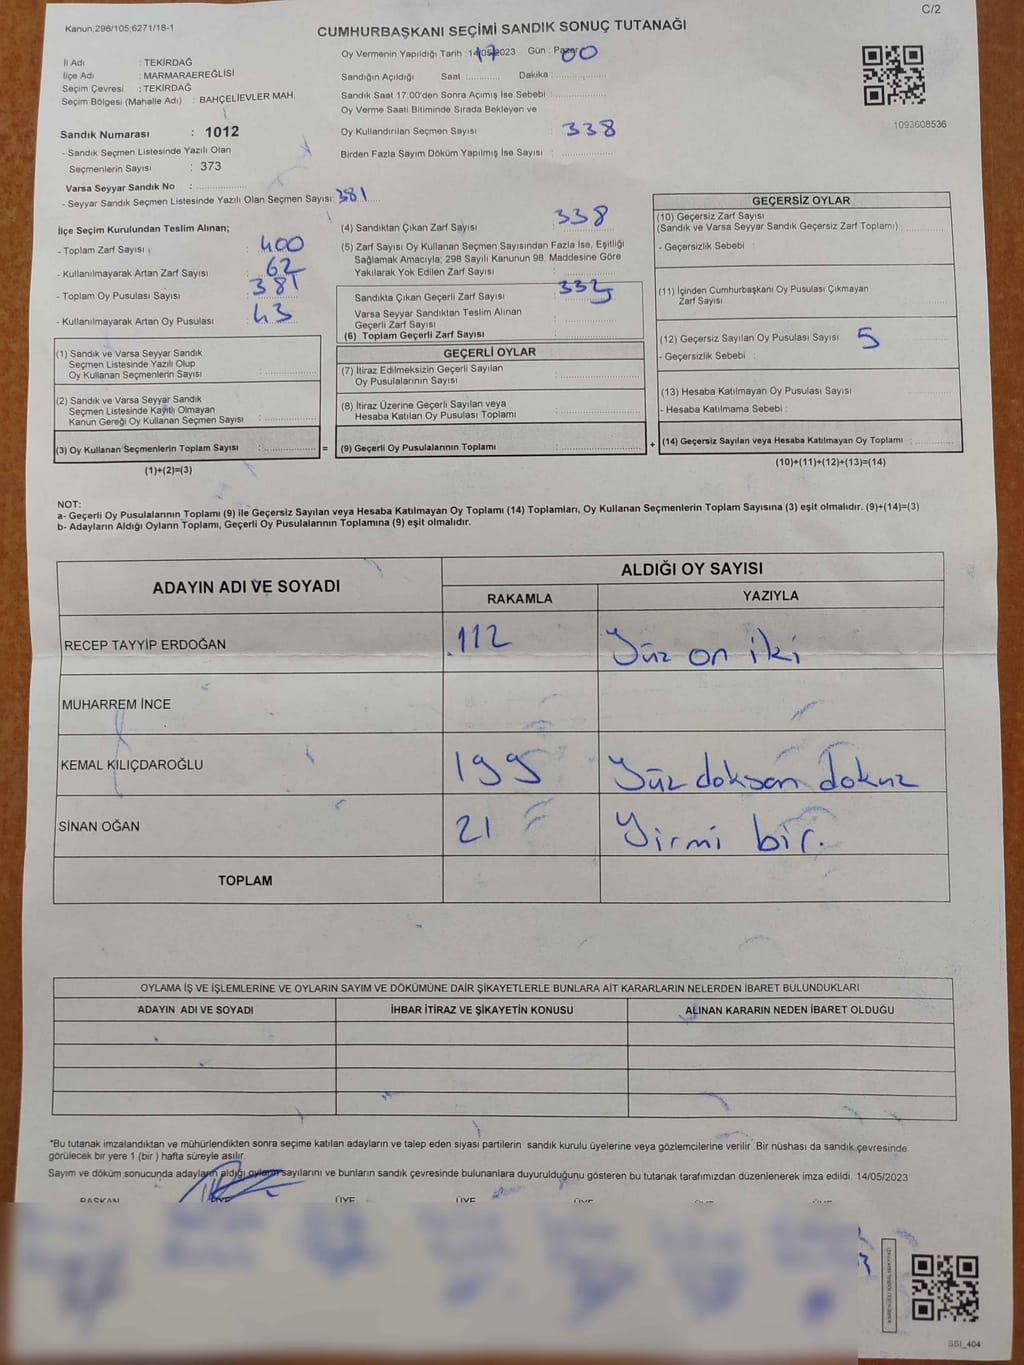 Kanun:298/105;6271/18-1
C/2
CUMHURBAŞKANI SEÇİMİ SANDIK SONUÇ TUTANAĞI
İl Adı : TEKİRDAĞ
İlçe Adı : MARMARAEREĞLİSİ
Seçim Çevresi : TEKİRDAĞ
Seçim Bölgesi (Mahalle Adı) : BAHÇELİEVLER MAH.
Sandık Numarası : 1012
- Sandık Seçmen Listesinde Yazılı Olan
Seçmenlerin Sayısı : 373
Varsa Seyyar Sandık No :
- Seyyar Sandık Seçmen Listesinde Yazılı Olan Seçmen Sayısı: 381
Oy Vermenin Yapıldığı Tarih : 14/05/2023 Gün : Pazar
17 00
Sandığın Açıldığı Saat : Dakika :
Sandık Saat 17:00'den Sonra Açımış İse Sebebi :
Oy Verme Saati Bitiminde Sırada Bekleyen ve
Oy Kullandırılan Seçmen Sayısı : 338
Birden Fazla Sayım Döküm Yapılmış İse Sayısı :
1093608536
İlçe Seçim Kurulundan Teslim Alınan;
- Toplam Zarf Sayısı : 400
- Kullanılmayarak Artan Zarf Sayısı : 62
- Toplam Oy Pusulası Sayısı : 381
- Kullanılmayarak Artan Oy Pusulası : 43
(1) Sandık ve Varsa Seyyar Sandık
Seçmen Listesinde Yazılı Olup
Oy Kullanan Seçmenlerin Sayısı :
(2) Sandık ve Varsa Seyyar Sandık
Seçmen Listesinde Kayıtlı Olmayan
Kanun Gereği Oy Kullanan Seçmen Sayısı :
(3) Oy Kullanan Seçmenlerin Toplam Sayısı :
=
(1)+(2)=(3)
(4) Sandıktan Çıkan Zarf Sayısı : 338
(5) Zarf Sayısı Oy Kullanan Seçmen Sayısından Fazla İse, Eşitliği
Sağlamak Amacıyla; 298 Sayılı Kanunun 98. Maddesine Göre
Yakılarak Yok Edilen Zarf Sayısı :
Sandıkta Çıkan Geçerli Zarf Sayısı :
Varsa Seyyar Sandıktan Teslim Alınan
Geçerli Zarf Sayısı :
(6) Toplam Geçerli Zarf Sayısı :
GEÇERLİ OYLAR
(7) İtiraz Edilmeksizin Geçerli Sayılan
Oy Pusulalarının Sayısı :
(8) İtiraz Üzerine Geçerli Sayılan veya
Hesaba Katılan Oy Pusulası Toplamı :
(9) Geçerli Oy Pusulalarının Toplamı :
+
GEÇERSİZ OYLAR
(10) Geçersiz Zarf Sayısı
(Sandık ve Varsa Seyyar Sandık Geçersiz Zarf Toplamı) :
- Geçersizlik Sebebi :
(11) İçinden Cumhurbaşkanı Oy Pusulası Çıkmayan
Zarf Sayısı :
(12) Geçersiz Sayılan Oy Pusulası Sayısı : 5
- Geçersizlik Sebebi :
(13) Hesaba Katılmayan Oy Pusulası Sayısı :
- Hesaba Katılmama Sebebi :
(14) Geçersiz Sayılan veya Hesaba Katılmayan Oy Toplamı :
(10)+(11)+(12)+(13)=(14)
NOT:
a- Geçerli Oy Pusulalarının Toplamı (9) ile Geçersiz Sayılan veya Hesaba Katılmayan Oy Toplamı (14) Toplamları, Oy Kullanan Seçmenlerin Toplam Sayısına (3) eşit olmalıdır. (9)+(14)=(3)
b- Adayların Aldığı Oyların Toplamı, Geçerli Oy Pusulalarının Toplamına (9) eşit olmalıdır.
ADAYIN ADI VE SOYADI
ALDIĞI OY SAYISI
RAKAMLA YAZIYLA
RECEP TAYYİP ERDOĞAN 112 Yüz on iki
MUHARREM İNCE
KEMAL KILIÇDAROĞLU 199 Yüz doksan dokuz
SİNAN OĞAN 21 Yirmi bir.
TOPLAM
OYLAMA İŞ VE İŞLEMLERİNE VE OYLARIN SAYIM VE DÖKÜMÜNE DAİR ŞİKAYETLERLE BUNLARA AİT KARARLARIN NELERDEN İBARET BULUNDUKLARI
ADAYIN ADI VE SOYADI İHBAR İTİRAZ VE ŞİKAYETİN KONUSU ALINAN KARARIN NEDEN İBARET OLDUĞU
*Bu tutanak imzalandıktan ve mühürlendikten sonra seçime katılan adayların ve talep eden siyasi partilerin sandık kurulu üyelerine veya gözlemcilerine verilir. Bir nüshası da sandık çevresinde
görülecek bir yere 1 (bir ) hafta süreyle asılır.
Sayım ve döküm sonucunda adayların aldığı oyların sayılarını ve bunların sandık çevresinde bulunanlara duyurulduğunu gösteren bu tutanak tarafımızdan düzenlenerek imza edildi. 14/05/2023
BAŞKAN ÜYE ÜYE ÜYE
SSI_404